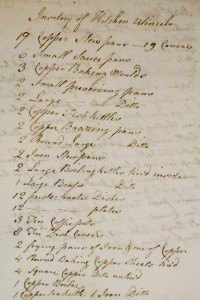 Inventory of Kitchen Utincils
19 Copper Stew pans — 19 Covers
6 Small Sauce pans
3 Copper Baking Moulds
2 Small preserving pans
2 Large — Ditto
2 Copper Fish kettles
2 Copper Brazing pans
2 Round Large — Ditto
2 Iron Stewpans
2 Large Boiling kettles
1 Large Brass — Ditto
12 pewter water Dishes
12 — plates
3 Tin Coffee pots
8 Tin Dish Covers
2 frying pans of Iron & one of Copper
4 Round Baking Copper Sheets
4 Square Copper Ditto
1 Copper Boiler
1 Copper 1 Iron Ditto